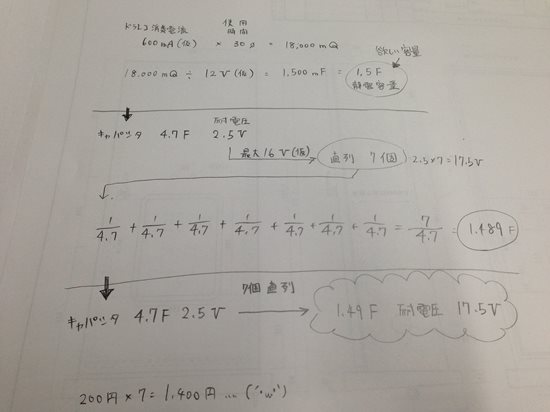 ドラレコ消費電流 使用時間
600mA(仮) × 30s = 18,000mQ
欲しい容量
18,000mQ ÷ 12V(仮) = 1,500mF = 1.5F 静電容量
キャパシタ 4.7F 耐電圧 2.5V
最大16V(仮) 直列 7個 2.5×7=17.5V
1/4.7 + 1/4.7 + 1/4.7 + 1/4.7 + 1/4.7 + 1/4.7 + 1/4.7 = 7/4.7 = 1.489F
7個直列
キャパシタ 4.7F 2.5V → 1.49F 耐電圧 17.5V
200円×7=1,400円...(´･ω･`)